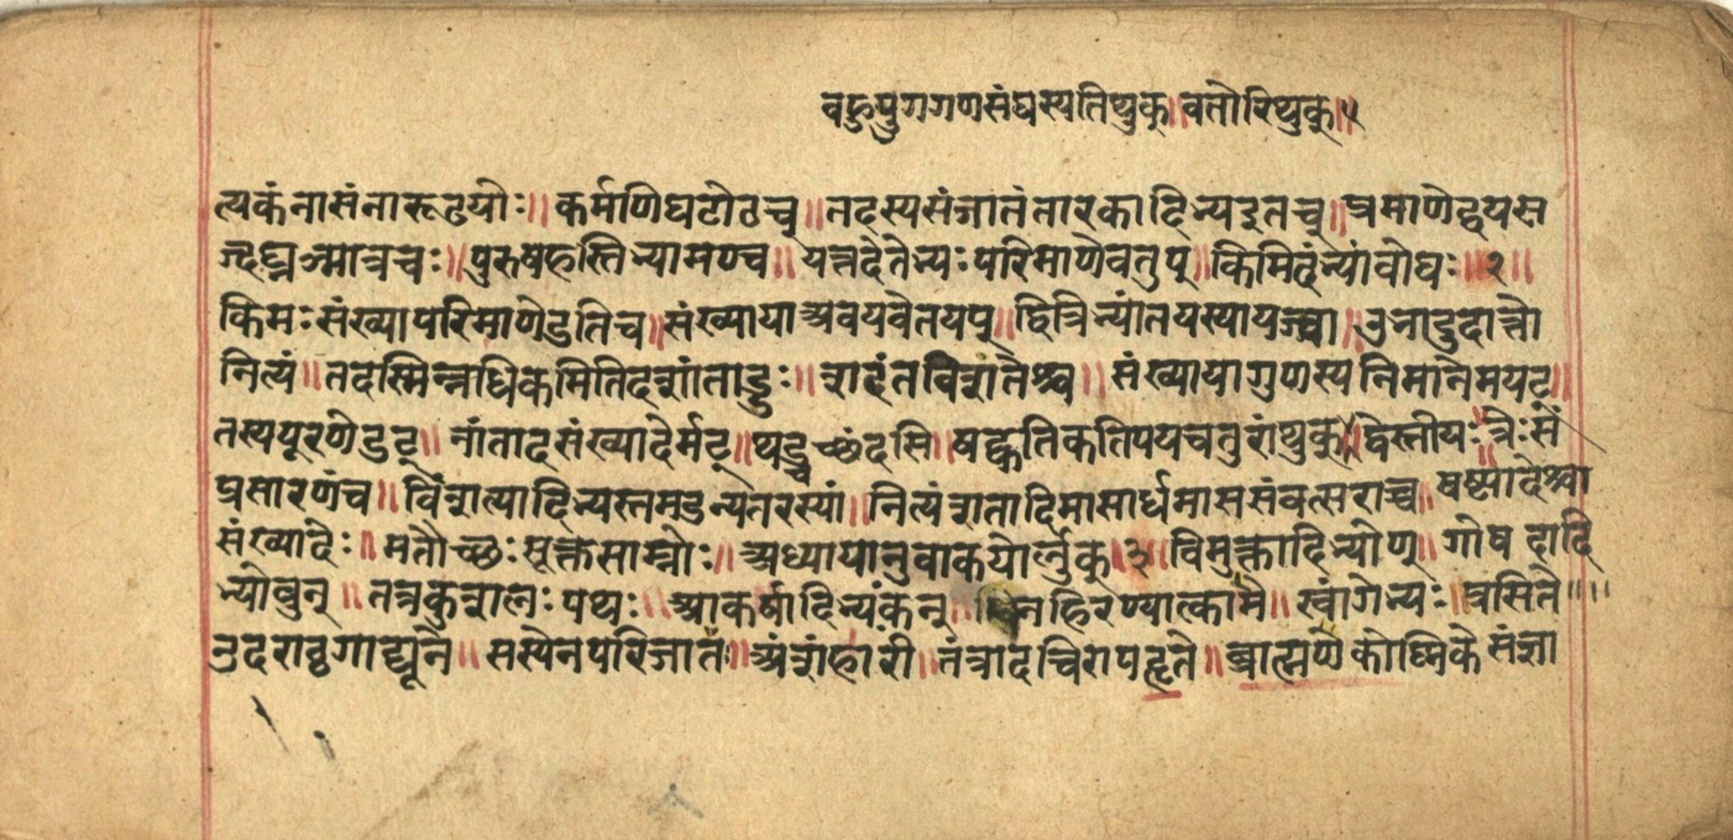 वहुपुगगणसंघस्यतिथुक्॥वतोरिथुक्॥५
त्यकंनासंनारूढयोः॥कर्मणिघटोठच्॥तदस्यसंजातंतारकादिभ्यइतच्॥प्रमाणेद्वयस
ज्दघ्नञ्मात्रचः॥पुरुषहस्तिभ्यामण्च॥यत्तदेतेभ्यःपरिमाणेवतुप्॥किमिदंभ्यांवोघः॥२॥
किमःसंख्यापरिमाणेडतिच॥संख्यायाअवयवेतयप्॥द्वित्रिभ्यांतयस्यायज्वा॥उभादुदात्तो
नित्यं॥तदस्मिन्नधिकमितिदशांताड्डः॥शदंतविंशतेश्च॥संख्यायागुणस्यनिमानेमयट्॥
तस्यपूरणेडट्॥नांतादसंख्यादेर्मट्॥थट्चच्छंदसि॥षट्कतिकतिपयचतुरांथुक्॥द्वेस्तीयः॥त्रेःसं
प्रसारणंच॥विंशत्यादिभ्यस्तमडन्यतरस्यां॥नित्यंशतादिमासार्धमाससंवत्सराच्च॥षष्ट्यादेश्चा
संख्यादेः॥मतौच्छःसूक्तसाम्नोः॥अध्यायानुवाकयोर्लुक्॥३॥विमुक्तादिभ्योण्॥गोषदादि
भ्योवुन्॥तत्रकुशलःपथः॥आकर्षादिभ्यंकन्॥धनहिरण्यात्कामे॥स्वांगेभ्यः॥प्रसिते॥॥
उदराठ्ठगाद्यूने॥सस्येनपरिजातः॥अंशंहारी॥तंत्रादचिरापहृते॥ब्राह्मणकोष्णिकेसंज्ञा